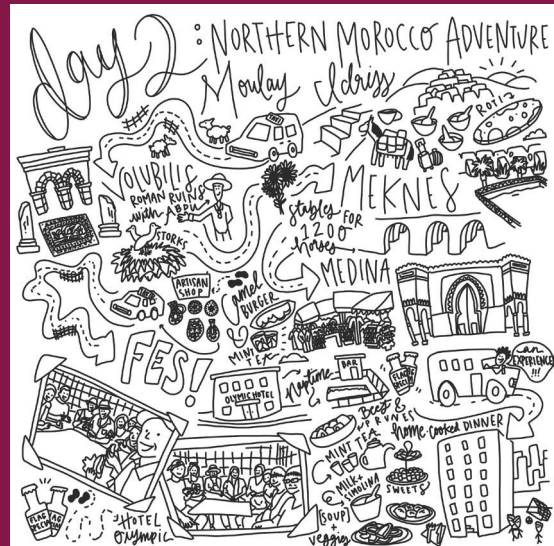 day 2: NORTHERN MOROCCO ADVENTURE
Moulay Idriss
TAXI
ROTI
VOLUBILIS
ROMAN RUINS
with ABDU
STORKS
stables FOR
1200
horses
MEKNES
MEDINA
ARTISAN
SHOP
Camel
BURGER
MINT
TEA
FES!
OLYMIC HOTEL
Naptime
BAR
FLAG
SPECIAL
an
EXPERIENCE
!!!
Beef &
PRUNES
home-cooked DINNER
MINT TEA
MILK+
SIMOLINA
[SOUP]
SWEETS
veggies
HOTEL
Olympic